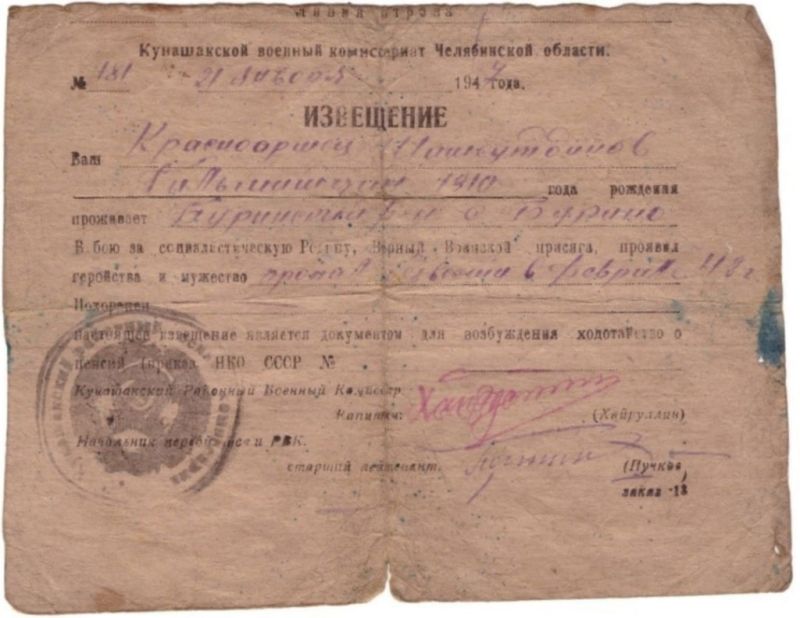 линия отрыва
Кунашакской военный комиссариат Челябинской области.
№ 181 21 января 1947 года.
ИЗВЕЩЕНИЕ
Ваш Красноармеец
1910 года рождения
проживает Буринский с Бурино
В бою за социалистическую Родину, Верный Воинской присяга, проявил
геройства и мужество пропал безвести в феврале 43 г
Похоронен
настоящее извещение является документом для возбуждения ходотайство о
пенсии (приказ НКО СССР №
Кунашакский Районный Военный Комиссар
Капитан: (Хайруллин)
Начальник первой части РВК.
старший лейтенант. (Пучков)
заказ -13